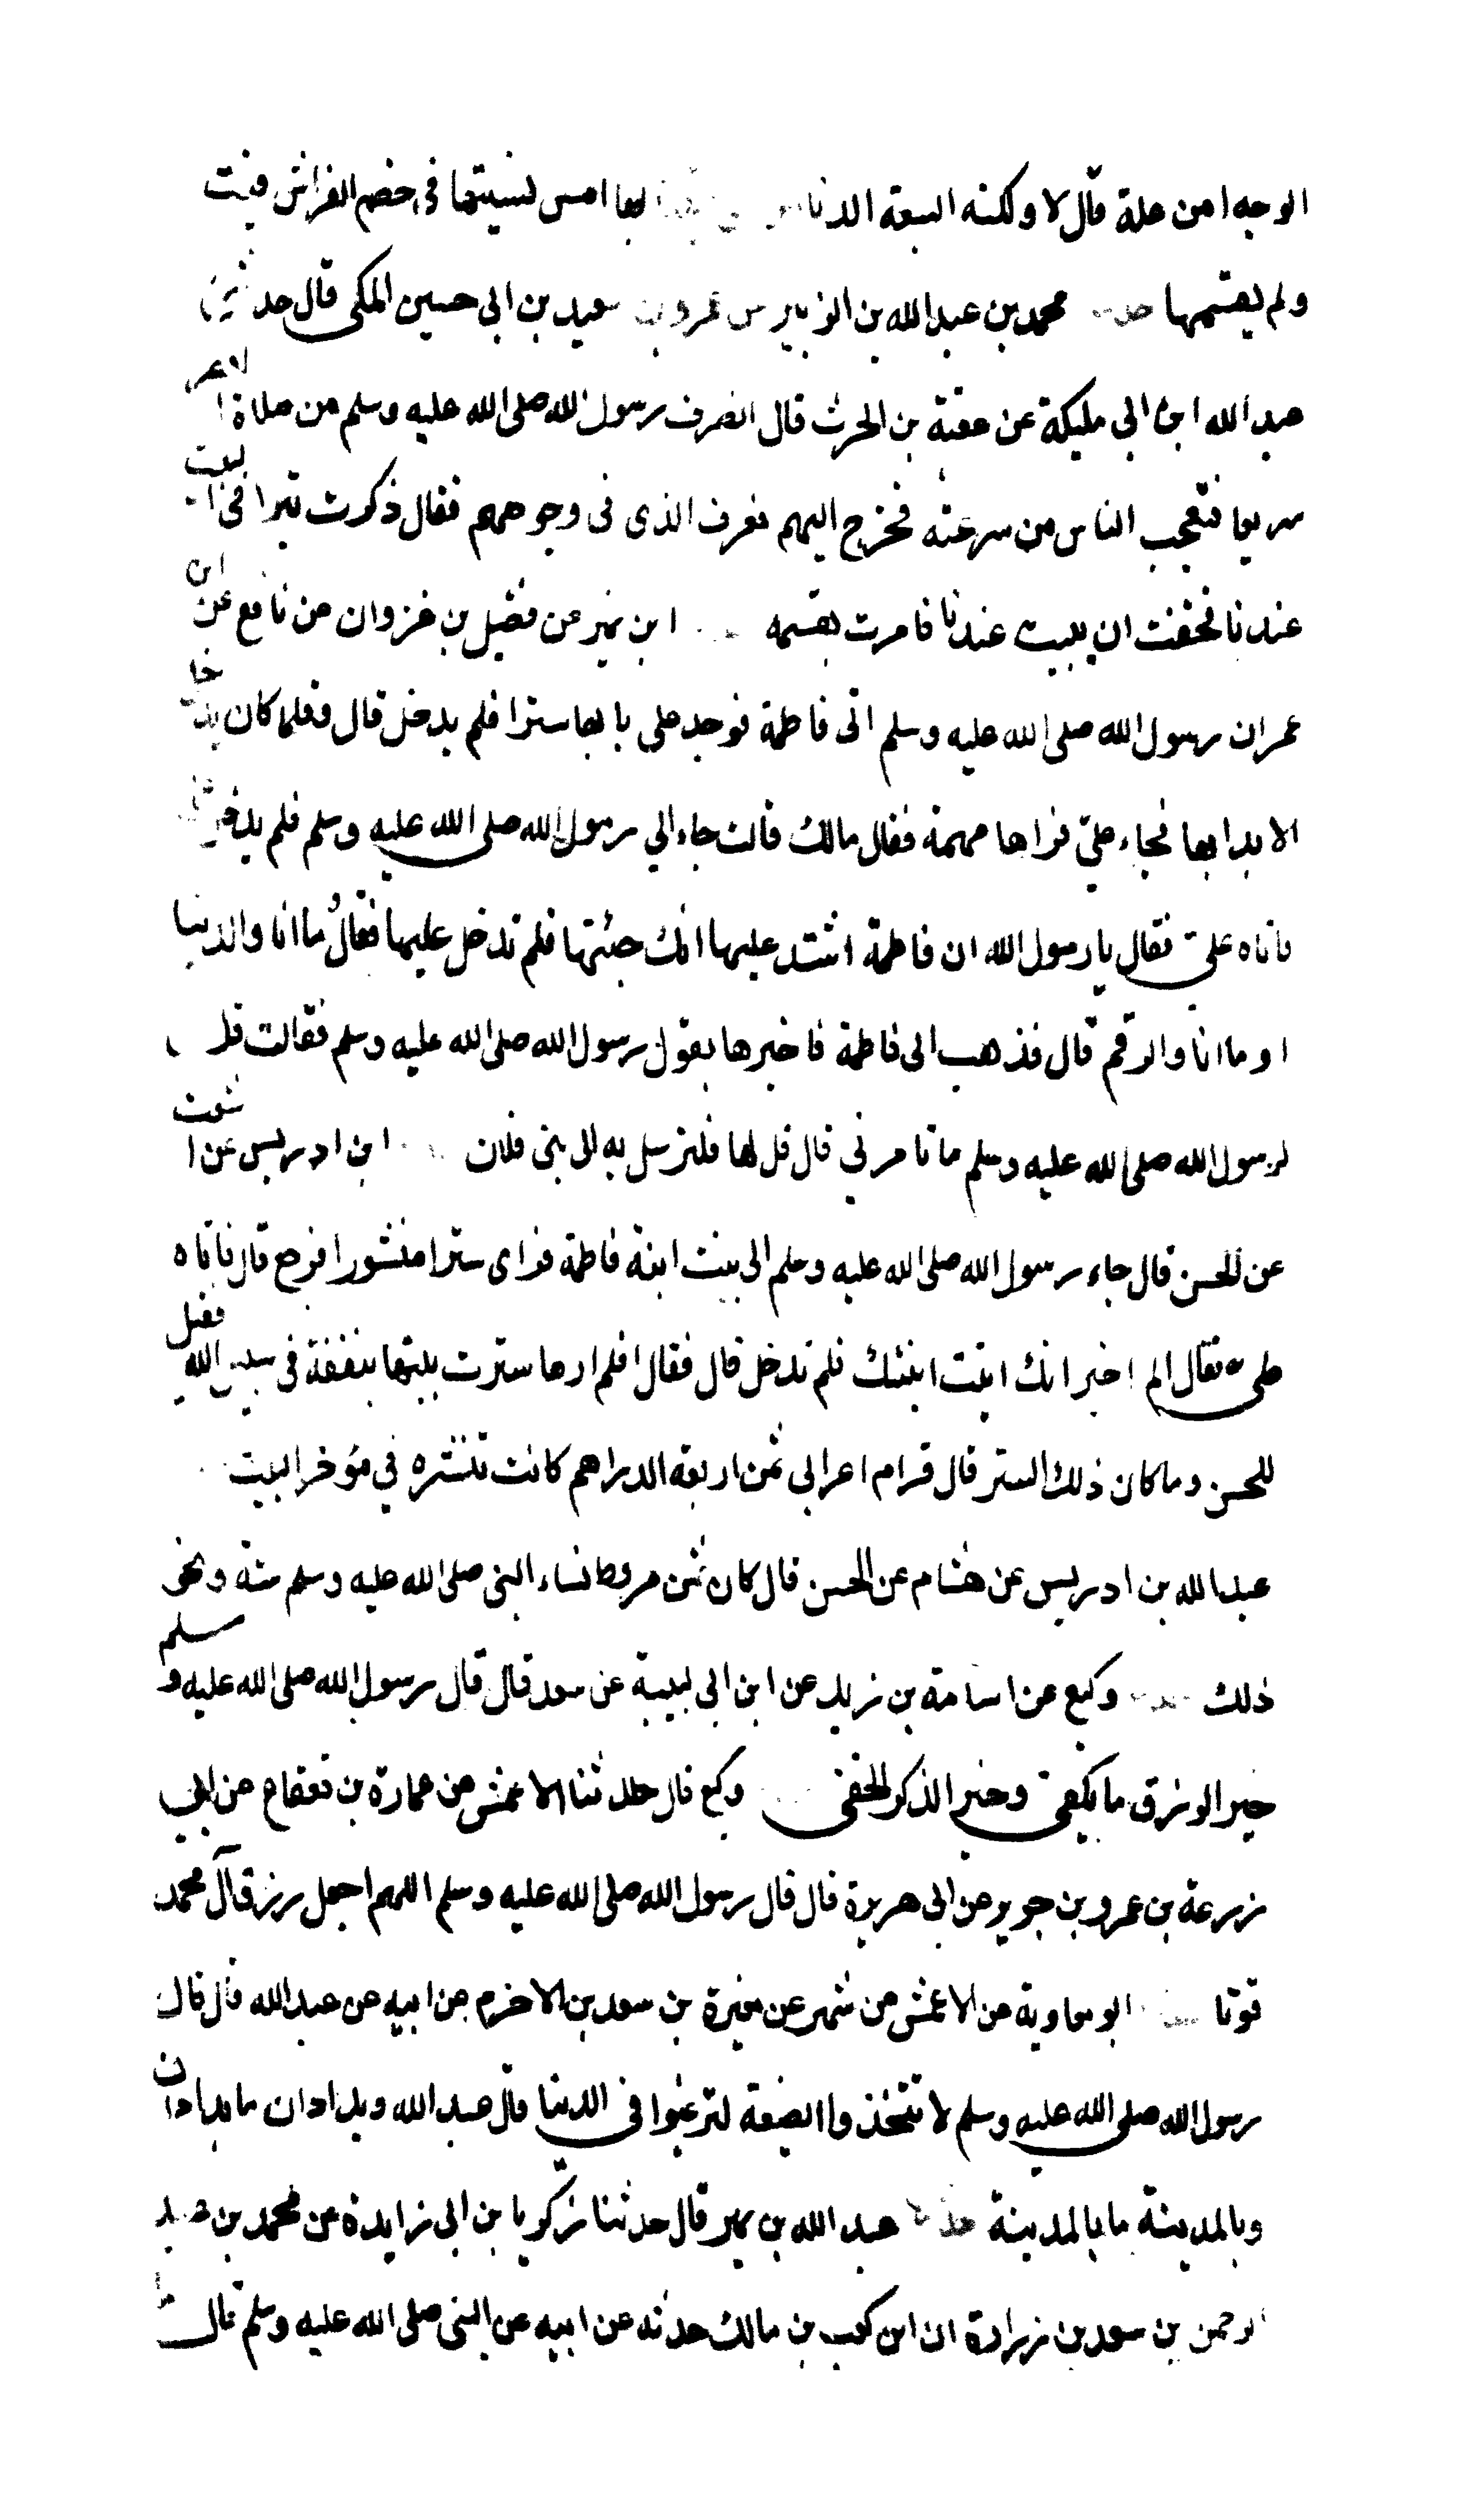 الوجه امن علة قال لا ولكنه السبعة الدنا بها امس نسيتها في خصم الفراش فبت
ولم يقسمها حدثنا محمد بن عبدالله بن الزبير عن عمرو بن سعيد بن ابي حسين المكي قال حدثني
عبد الله ابن ابي مليكة عن عقبة بن الحرث قال انصرف رسول الله صلى الله عليه وسلم من صلاة العصر
سريعا فتعجب الناس من سرعته فخرج اليهم فعرف الذى فى وجوههم فقال ذكرت تبرا فى البيت
عندنا فخفت ان يبيت عندنا فامرت بقسمه ابن نمير عن فضيل بن غزوان عن نافع عن ابن
عمر ان رسول الله صلى الله عليه وسلم اتى فاطمة فوجد على بابها سترا فلم يدخل قال وقلما كان يدخل
الا بدا بها فجاء علي فراها مهمة فقال مالك قالت جاء الي رسول الله صلى الله عليه وسلم فلم يدخل
فاتاه علي فقال يا رسول الله ان فاطمة اشتد عليها انك جئتها فلم تدخل عليها فقال وما انا والدنيا
او ما انا والرقم قال فذهب الى فاطمة فاخبرها بقول رسول الله صلى الله عليه وسلم فقالت قل
لرسول الله صلى الله عليه وسلم ما تامرني قال قل لها فلترسل به الى بنى فلان ابن ادريس عن اشعث
عن الحسن قال جاء رسول الله صلى الله عليه وسلم الى بيت ابنة فاطمة فراى سترا منشورا فرجع قال فاتاه
على فقال الم اخبر انك اتيت ابنتك فلم تدخل قال فقال افلم ارها سترت بيتها بنفقة فى سبيل الله فقيل
للحسن وما كان ذلك الستر قال قرام اعرابى ثمن اربعة الدراهم كانت تنشره في مؤخر البيت
عبد الله بن ادريس عن هشام عن الحسن قال كان ثمن مروط نساء النبى صلى الله عليه وسلم ستة ونحو
ذلك وكيع عن اسامة بن زيد عن ابن ابى لبيبة عن سعد قال قال رسول الله صلى الله عليه وسلم
خير الرزق ما يكفى وخير الذكر الخفى وكيع قال حدثنا الاعمش عن عمارة بن قعقاع عن ابي
زرعة بن عمرو بن جرير عن ابى هريرة قال قال رسول الله صلى الله عليه وسلم اللهم اجعل رزق آل محمد
قوتا ابو معاوية عن الاعمش عن شمر عن مغيرة بن سعد بن الاخرم عن ابيه عن عبد الله قال قال
رسول الله صلى الله عليه وسلم لا تتخذوا الضيعة لترغبوا فى الدنيا قال عبد الله وبراذان ما براذان
وبالمدينة ما بالمدينة حدثنا عبد الله بن نمير قال حدثنا زكريا بن ابى زايدة عن محمد بن عبد
الرحمن بن سعد بن زرارة ان ابن كعب بن مالك حدثه عن ابيه عن النبى صلى الله عليه وسلم قال